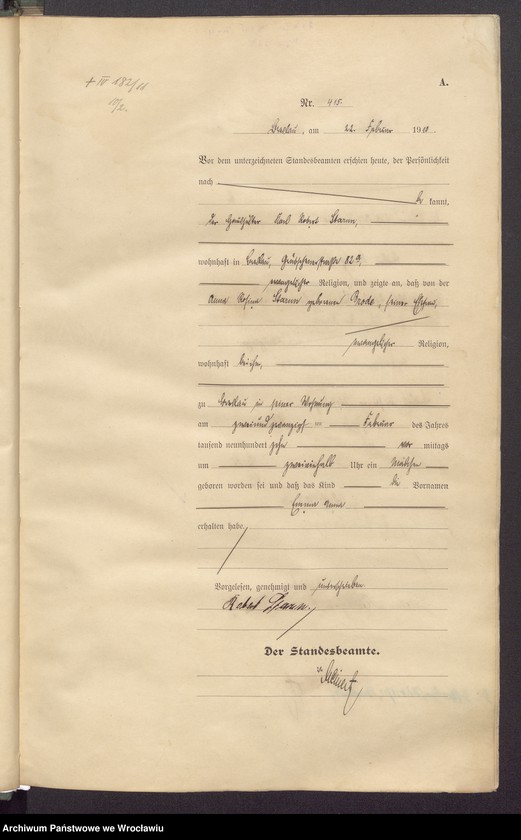 + IV 182/11
A.
Nr. 415.
Breslau, am 22. Februar 1910.
Vor dem unterzeichneten Standesbeamten erschien heute, der Persönlichkeit
nach be kannt,
der Haushälter Karl Robert
wohnhaft in Breslau, 82a,
evangelischer Religion, und zeigte an, daß von der
Anna Rosina geborenen Brode, seiner Ehefrau,
evangelischer Religion,
wohnhaft bei ihm,
zu Breslau in seiner Wohnung
am zweiundzwanzigsten Februar des Jahres
tausend neunhundert zehn vor mittags
um Uhr ein Mädchen
geboren worden sei und daß das Kind die Vornamen
Emma Anna
erhalten habe.
Vorgelesen, genehmigt und unterschrieben
Robert
Der Standesbeamte.
Archiwum Państwowe we Wrocławiu